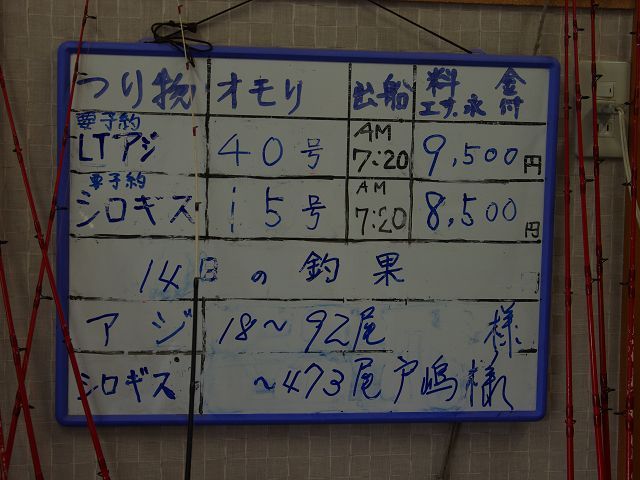 つり物 オモリ 出船 料金
エサ.氷付
要予約
LTアジ 40号 AM 7:20 9,500円
要予約
シロギス 15号 AM 7:20 8,500円
14日の釣果
アジ 18〜92尾 様
シロギス 〜473尾 戸嶋様